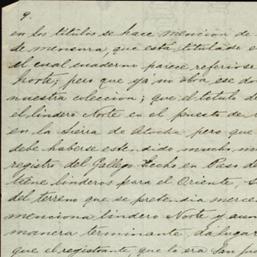 9.
en los títulos se hace mencion de
de mensura, que está titulado e
el cual cuaderno parece referirse
Norte; pero que ya no obra ese do
nuestra coleccion; que el título de
el lindero Norte en el puesto de
en la Sierra de Atocha pero que
debe haberse estendido mucho m
registro del Gallego hecho en Paso de
tiene linderos para el Oriente, s
del terreno que se pretendia merce
menciona lindero Norte y aun
manera terminante, da lugar
que el registrante, que lo era San Jua